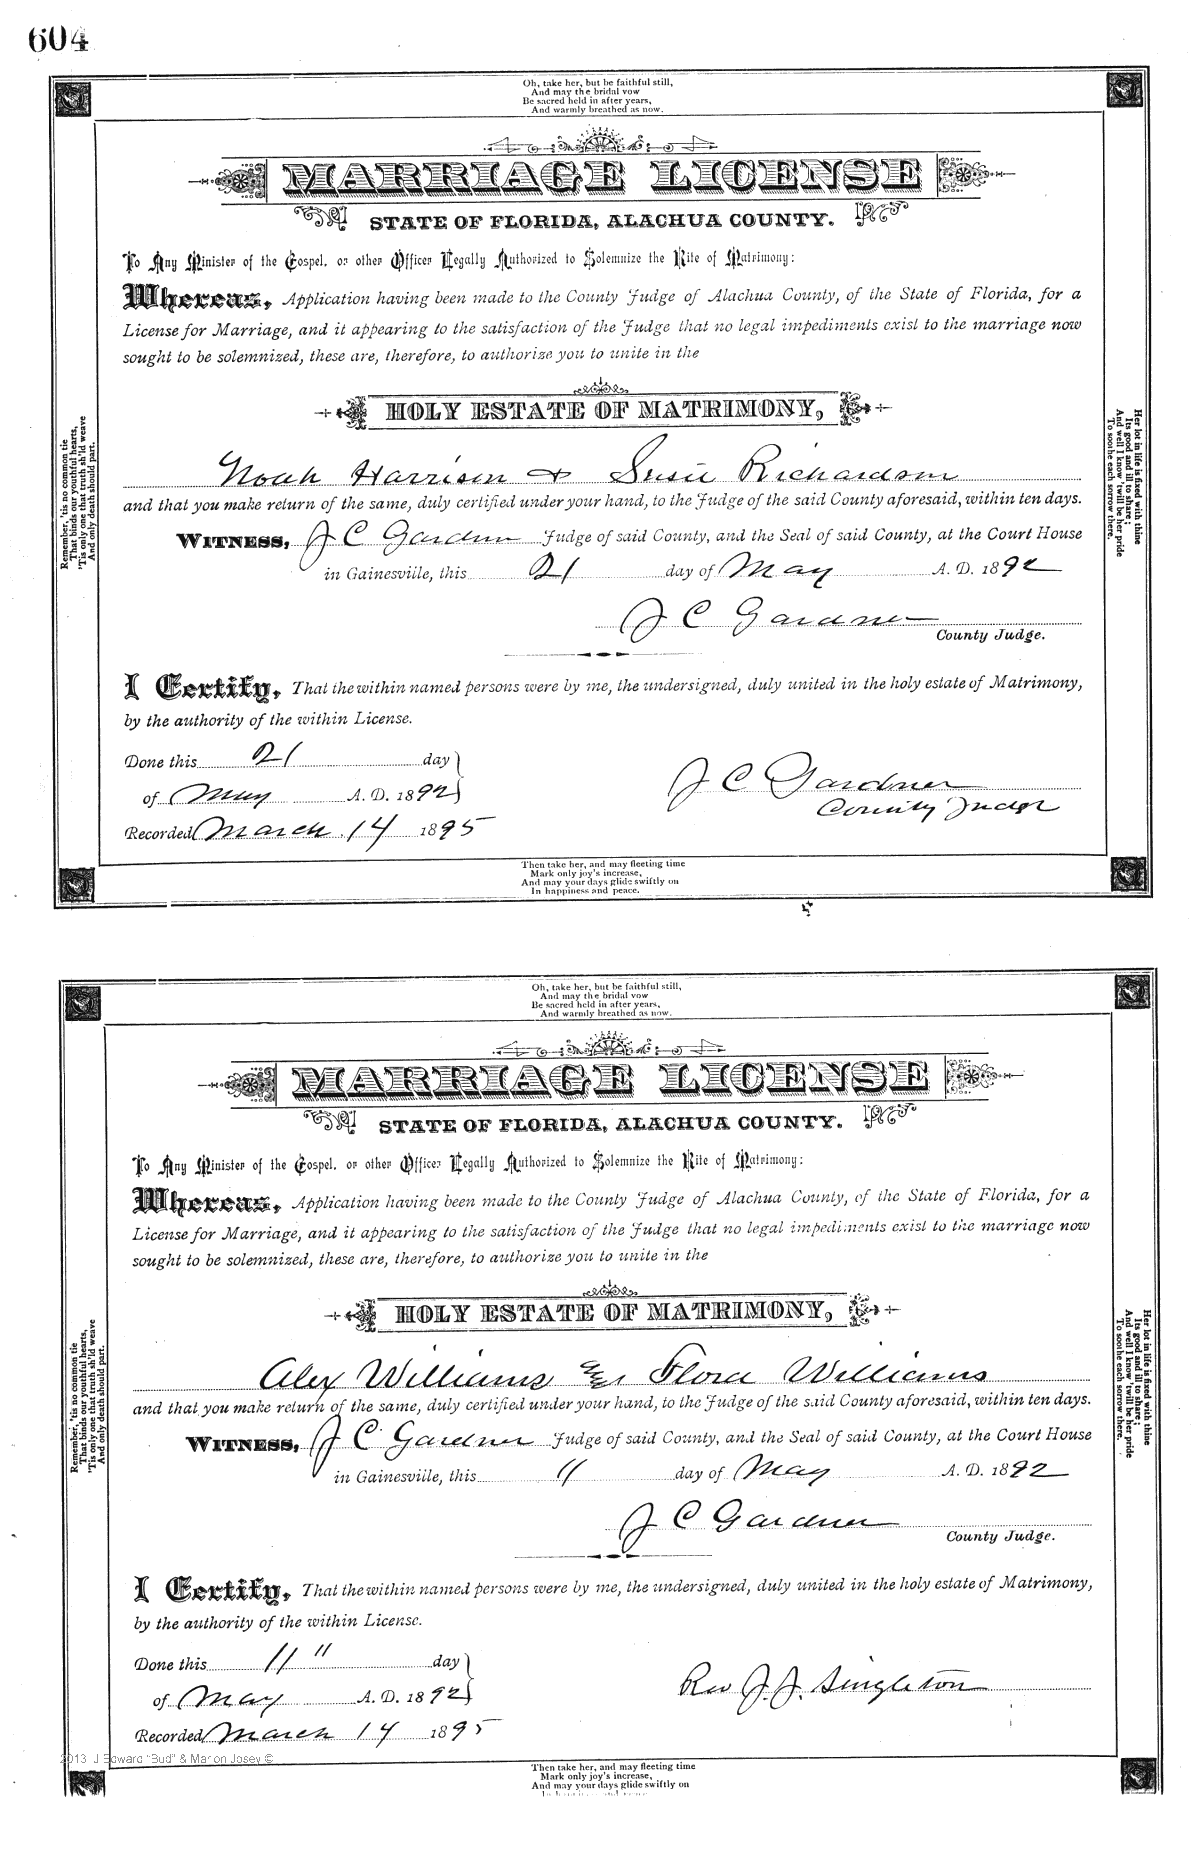 604
Oh, take her, but be faithful still,
And may the bridal vow
Be sacred held in after years,
And warmly breathed as now.
MARRIAGE LICENSE
STATE OF FLORIDA, ALACHUA COUNTY.
To Any Minister of the Gospel, or other Officer Legally Authorized to Solemnize the Rite of Matrimony:
Whereas, Application having been made to the County Judge of Alachua County, of the State of Florida, for a
License for Marriage, and it appearing to the satisfaction of the Judge that no legal impediments exist to the marriage now
sought to be solemnized, these are, therefore, to authorize you to unite in the
HOLY ESTATE OF MATRIMONY,
Noah Harrison & Susie Richardson
and that you make return of the same, duly certified under your hand, to the Judge of the said County aforesaid, within ten days.
WITNESS, J C Gardner Judge of said County, and the Seal of said County, at the Court House
in Gainesville, this 21 day of May A. D. 1892
J C Gardner
County Judge.
I Certify, That the within named persons were by me, the undersigned, duly united in the holy estate of Matrimony,
by the authority of the within License.
Done this 21 day
of May A. D. 1892
J C Gardner
County Judge
Recorded March 14 1895
Remember, 'tis no common tie
That binds our youthful hearts,
'Tis only one that truth sh'ld weave
And only death should part.
Her lot in life is fixed with thine
Its good and ill to share;
And well I know 'twill be her pride
To soothe each sorrow there.
Then take her, and may fleeting time
Mark only joy's increase,
And may your days glide swiftly on
In happiness and peace.
Oh, take her, but be faithful still,
And may the bridal vow
Be sacred held in after years,
And warmly breathed as now.
MARRIAGE LICENSE
STATE OF FLORIDA, ALACHUA COUNTY.
To Any Minister of the Gospel, or other Officer Legally Authorized to Solemnize the Rite of Matrimony:
Whereas, Application having been made to the County Judge of Alachua County, of the State of Florida, for a
License for Marriage, and it appearing to the satisfaction of the Judge that no legal impediments exist to the marriage now
sought to be solemnized, these are, therefore, to authorize you to unite in the
HOLY ESTATE OF MATRIMONY,
Alex Williams & Flora Williams
and that you make return of the same, duly certified under your hand, to the Judge of the said County aforesaid, within ten days.
WITNESS, J C Gardner Judge of said County, and the Seal of said County, at the Court House
in Gainesville, this 11 day of May A. D. 1892
J C Gardner
County Judge.
I Certify, That the within named persons were by me, the undersigned, duly united in the holy estate of Matrimony,
by the authority of the within License.
Done this 11" day
of May A. D. 1892
Rev J. J. Singleton
Recorded March 14 1895
Remember, 'tis no common tie
That binds our youthful hearts,
'Tis only one that truth sh'ld weave
And only death should part.
Her lot in life is fixed with thine
Its good and ill to share;
And well I know 'twill be her pride
To soothe each sorrow there.
2013 J Edward "Bud" & Marion Josey ©
Then take her, and may fleeting time
Mark only joy's increase,
And may your days glide swiftly on